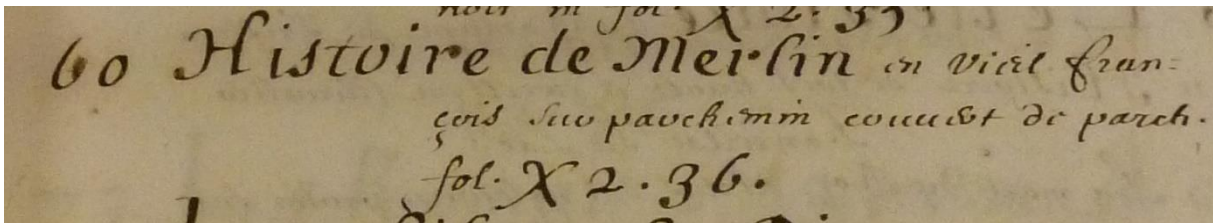 noir in fol. X 2. 35.
60 Histoire de Merlin en vieil fran=
çois sur parchemin couvert de parch.
fol. X 2. 36.